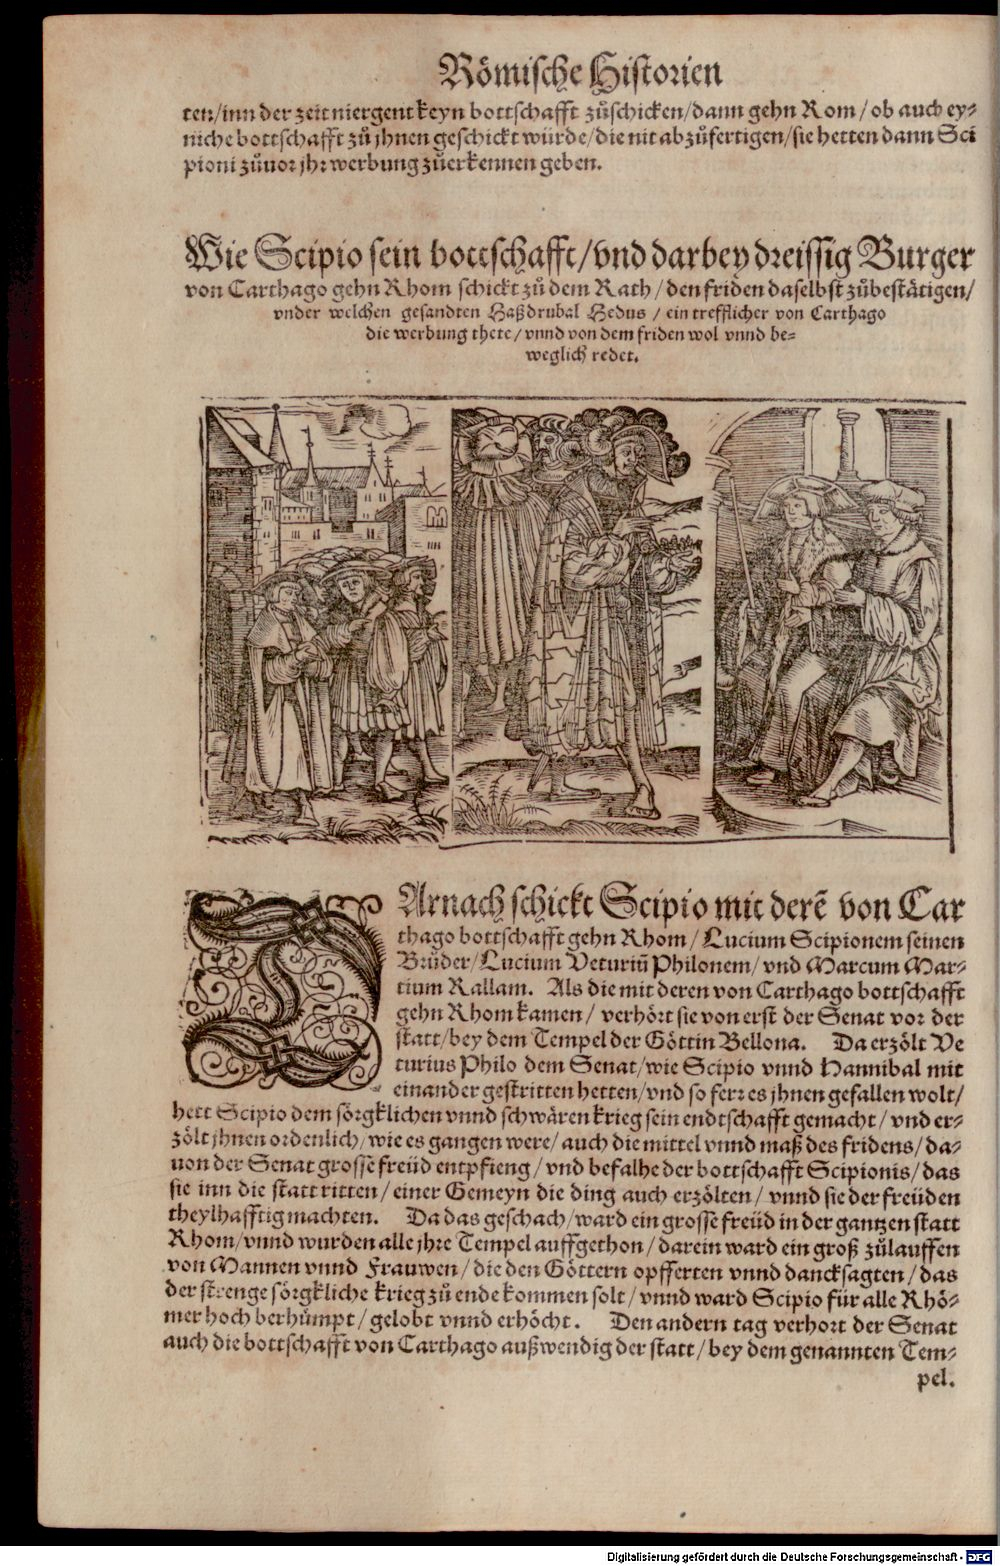 Römische Historien
ten/inn der zeit niergent keyn bottschafft zůschicken/dann gehn Rom/ob auch ey-
niche bottschafft zů jhnen geschickt würde/die nit abzůfertigen/sie hetten dann Sci
pioni zůuor jhr werbung zůerkennen geben.
Wie Scipio sein bottschafft/vnd darbey dreissig Burger
von Carthago gehn Rhom schickt zů dem Rath/den friden daselbst zůbestätigen/
vnder welchen gesandten Haßdrubal Hedus/ein trefflicher von Carthago
die werbung thete/vnnd von dem friden wol vnnd be-
weglich redet.
DArnach schickt Scipio mit derē von Car
thago bottschafft gehn Rhom/Lucium Scipionem seinen
Brůder/Lucium Veturiū Philonem/vnd Marcum Mar-
tium Rallam. Als die mit deren von Carthago bottschafft
gehn Rhom kamen/verhört sie von erst der Senat vor der
statt/bey dem Tempel der Göttin Bellona. Da erzölt Ve
turius Philo dem Senat/wie Scipio vnnd Hannibal mit
einander gestritten hetten/vnd so ferr es jhnen gefallen wolt/
hett Scipio dem sörgklichen vnnd schwären krieg sein endtschafft gemacht/vnd er-
zölt jhnen ordenlich/wie es gangen were/auch die mittel vnnd maß des fridens/da-
uon der Senat grosse freüd entpfieng/vnd befalhe der bottschafft Scipionis/das
sie inn die statt ritten/einer Gemeyn die ding auch erzölten/vnnd sie der freüden
theylhafftig machten. Da das geschach/ward ein grosse freüd in der gantzen statt
Rhom/vnnd wurden alle jhre Tempel auffgethon/darein ward ein groß zůlauffen
von Mannen vnnd Frauwen/die den Göttern opfferten vnnd dancksagten/das
der strenge sörgkliche krieg zů ende kommen solt/vnnd ward Scipio für alle Rhö-
mer hoch berhůmpt/gelobt vnnd erhöcht. Den andern tag verhort der Senat
auch die bottschafft von Carthago außwendig der statt/bey dem genannten Tem-
pel.
Digitalisierung gefördert durch die Deutsche Forschungsgemeinschaft - DFG